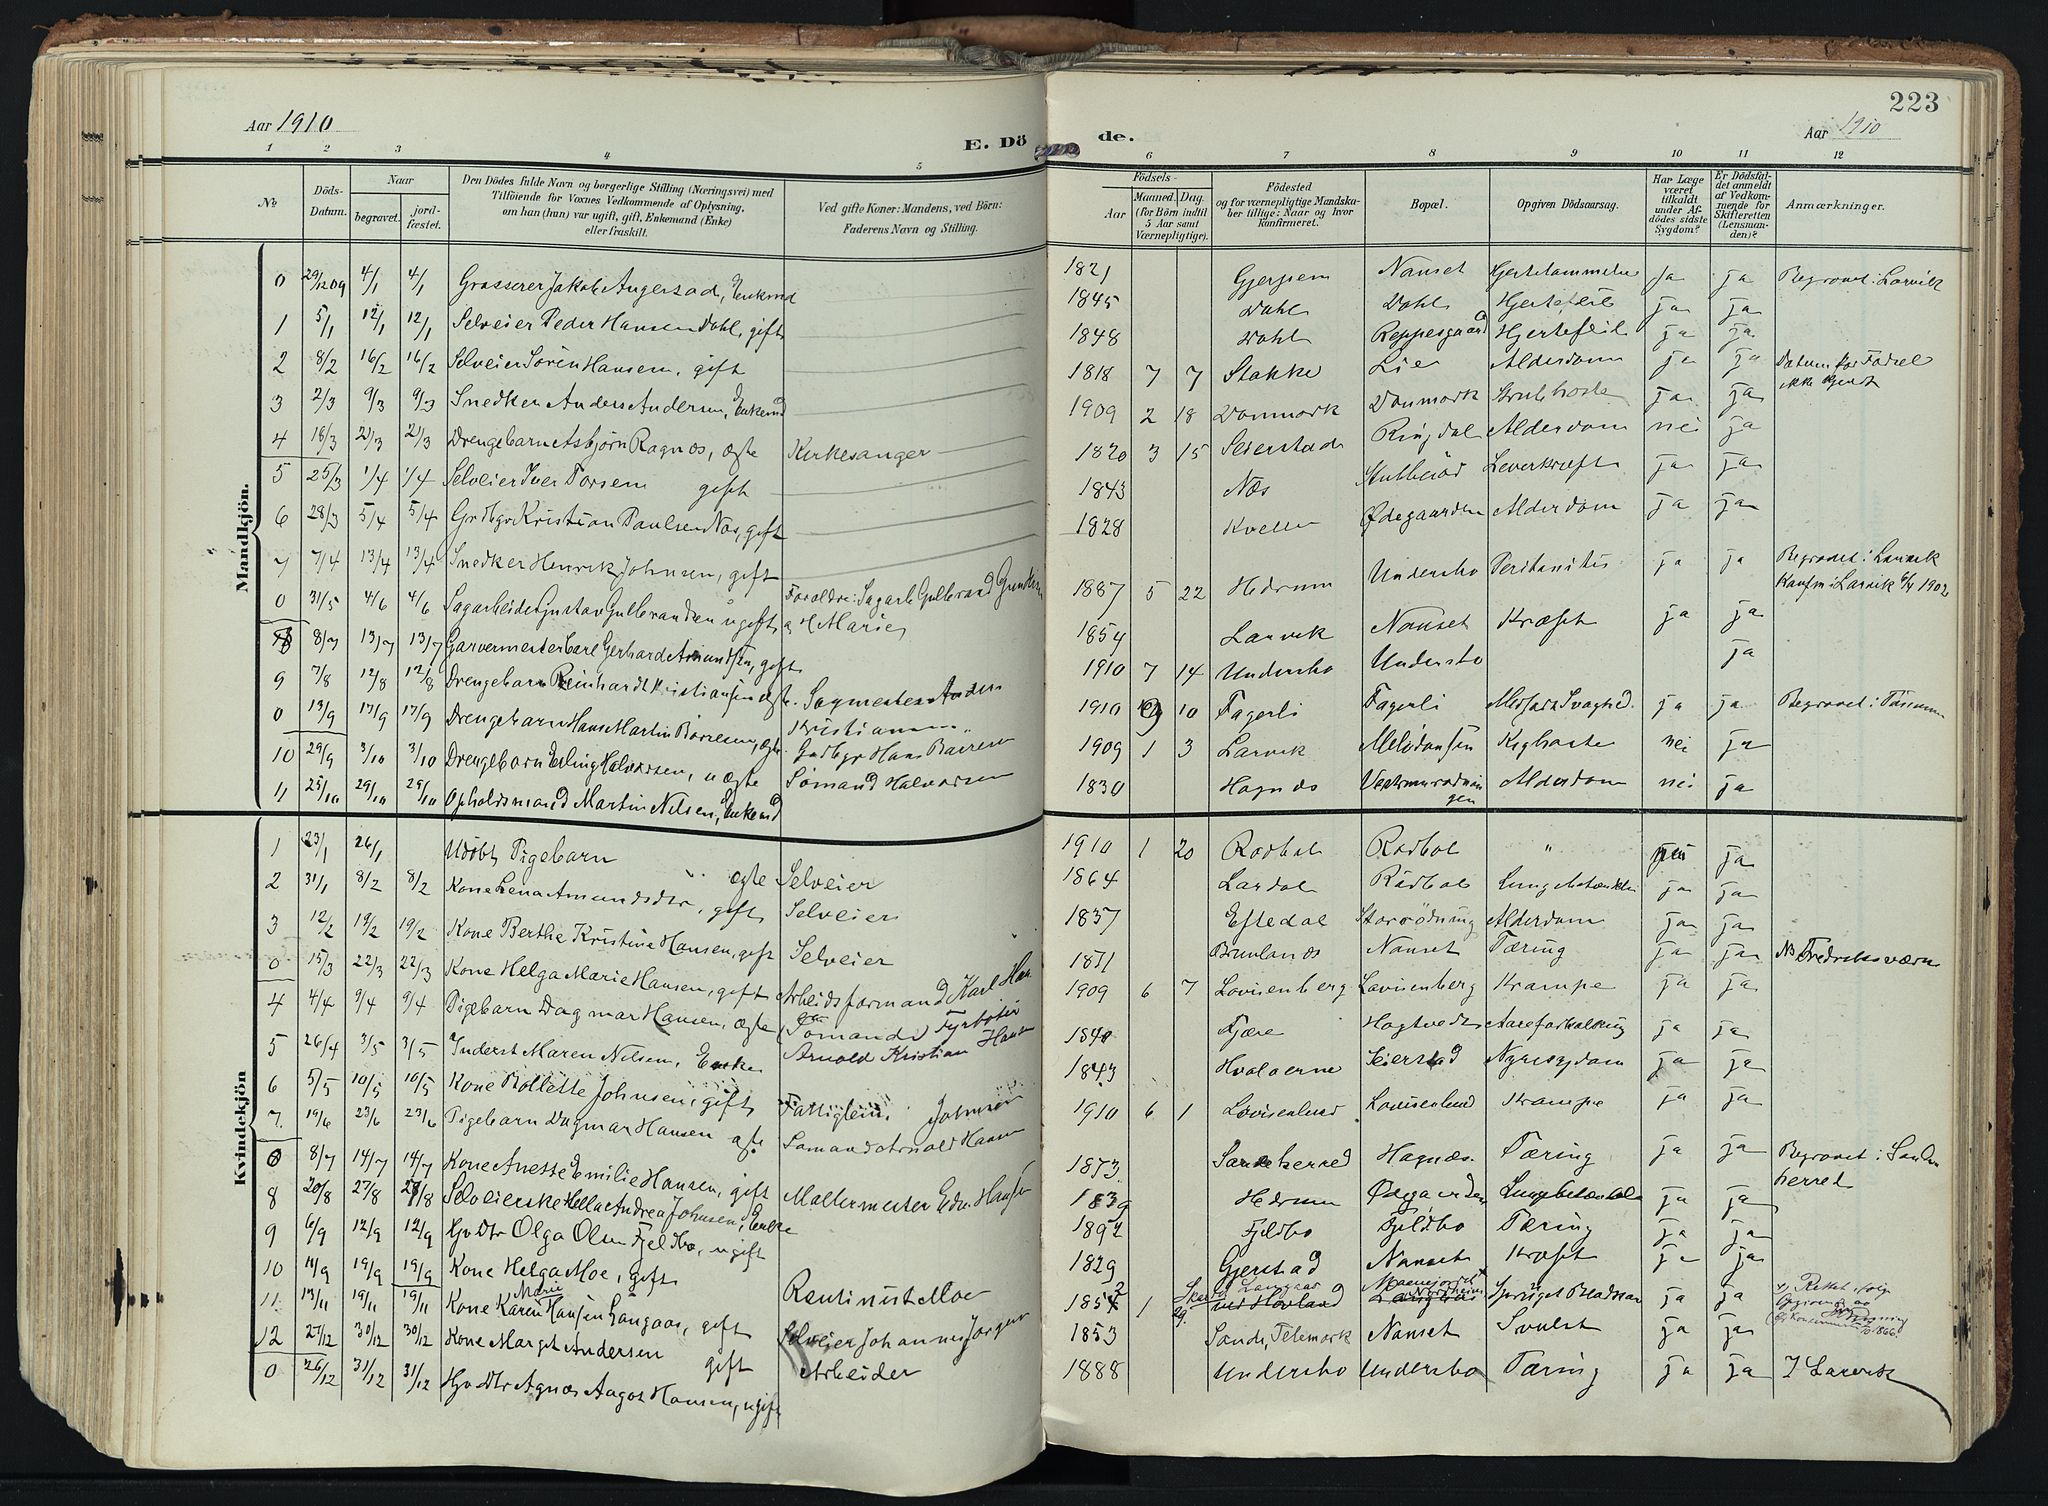 223
Aar 1910
E. Dö
de.
Aar 1910
1 2 3 4 5 6 7 8 9 10 11 12
No.
Döds-
Datum.
Naar
begravet.
jord-
fæstet.
Den Dödes fulde Navn og borgerlige Stilling (Næringsvei) med
Tilföiende for Voxnes Vedkommende af Oplysning,
om han (hun) var ugift, gift, Enkemand (Enke)
eller fraskilt.
Ved gifte Koner: Mandens, ved Börn:
Faderens Navn og Stilling.
Födsels-
Aar
Maaned. Dag.
(for Börn indtil
5 Aar samt
Værnepligtige).
Födested
og for værnepligtige Mandska-
ber tillige: Naar og hvor
konfirmeret.
Bopæl.
Opgiven Dödsaarsag.
Har Læge
været
tilkaldt
under Af-
dödes sidste
Sygdom?
Er Dödsfal-
det anmeldt
af Vedkom-
mende for
Skifteretten
(Lensman-
den)?
Anmærkninger.
Mandkjön.
0 29/12 09 4/1 4/1 Grosserer Jakob Enkemd 1821 Gjerpen Nanset Hjertelammelse ja ja Begravet i Larvik
1 5/1 12/1 12/1 Selveier Peder Hansen Dahl, gift 1845 Dahl Dahl Hjertefeil ja ja
2 8/2 16/2 16/2 Selveier Sören Hansen, gift 1848 Dahl Reppesgaard Hjertefeil ja ja
3 2/3 9/3 9/3 Snedker Anders Andersen, Enkemd 1818 7 7 Stokke Lie Alderdom ja ja Datum for Födsel
ikke kjendt
4 18/3 21/3 21/3 Drengebarn Asbjörn Ragnos, ægte Kirkesanger 1909 2 18 Danmark Danmark Strubhoste ja ja
5 25/3 1/4 1/4 Selveier Iver Torsen gift 1820 3 15 Seierstad Ringdal Alderdom nei ja
6 28/3 5/4 5/4 Grdbgr Kristian Paulsen Næs, gift 1843 Næs Stubberöd Leverkræft ja ja
7 7/4 13/4 13/4 Snedker Henrik Johnsen, gift 1828 Kvelle Ødegaarden Alderdom ja ja
0 31/5 4/6 4/6 Sagarbeider Gustav Gulbrandsen ugift Forældre: Sagarb. Gulbrand
og Marie 1887 5 22 Hedrum Undersbo Peritonitis ja ja Begravet i Larvik
Konfm i Larvik 1902
8/7 13/7 13/7 Garvermester Carl Gerhard Amundsen, gift 1854 Larvik Nanset Kræft ja ja
9 7/8 12/8 12/8 Drengebarn Reinhardt Kristiansen ægte. Sagmester Anders
Kristiansen 1910 7 14 Undersbo Undersbo ja
0 13/9 17/9 17/9 Drengebarn Hans Martin Börresen, ægte. Grdbgr Hans Börresen 1910 10 Fagerli Fagerli Medfödt Svaghed. ja ja Begravet i
10 29/9 3/10 3/10 Drengebarn Erling Halvorsen, uægte Sømand Halvorsen 1909 1 3 Larvik Kighoste nei ja
11 25/10 29/10 29/10 Opholdsmand Martin Nilsen, Enkemd 1830 Hagnes Alderdom nei ja
Kvindekjön
1 23/1 26/1 Udöbt Pigebarn ægte Selveier 1910 1 20 Rödbøl Rödbøl " nei ja
2 31/1 8/2 8/2 Kone Lena Amundsdtr, gift Selveier 1864 Lardal Rödbøl Lungebetændelse ja ja
3 12/2 19/2 19/2 Kone Berthe Kristine Hansen, gift Selveier 1837 Eftedal Storrödning Alderdom ja ja
0 15/3 22/3 22/3 Kone Helga Marie Hansen, gift Arbeidsformand Karl Han 1871 Brunlanes Nanset Tæring ja ja Fredriksværn
4 4/4 9/4 9/4 Pigebarn Dagmar Hansen, ægte (Sömand) Fyrböter
Arnold Kristian Hansen 1909 6 7 Lovisenberg Lovisenberg Krampe ja ja
5 26/4 3/5 3/5 Inderst Maren Nilsen, Enke 1840 Fjære Hogtvedt Aareforkalkning ja ja
6 5/5 10/5 10/5 Kone Rollette Johnsen, gift Fattiglem Johnsen 1843 Hvaløerne Seierstad Nyresygdom ja ja
7. 19/6 23/6 23/6 Pigebarn Dagmar Hansen ægte Sømand Arnold Hansen 1910 6 1 Lovisenlund Lovisenlund Krampe ja ja
8/7 14/7 14/7 Kone Anette Emilie Hansen, gift Mallermester Edv. Hansen 1873 Sandeherred Hagnæs. Tæring ja ja Begravet i Sande
herred
8 20/8 27/8 27/8 Selveierske Helle Andrea Johnsen, Enke 1839 Hedrum Ødegaarden Lungebetændelse ja ja
9 6/9 12/9 12/9 Grdbr Dtr Olga Olsen Fjeldbo, ugift 1892 Fjeldbo Fjeldbo Tæring ja ja
10 14/9 19/9 19/9 Kone Helga Moe, gift Rentinist Moe 1829 Gjerstad Nanset Kræft ja ja
11 13/11 19/11 19/11 Kone Karen Marie Hansen Langaas, gift Selveier Johannes Jörgen 1852 1 29 Langaas ved Hovland Langaas Sprunget Blodkar ja ja Rettet ifölge
12 27/12 30/12 30/12 Kone Marget Andersen gift Arbeider 1853 Sande, Telemark Nanset Svulst ja ja
0 26/12 31/12 31/12 Dtr Agnes Aagot Hansen, ugift 1888 Undersbo Undersbo Tæring ja ja I Larvik